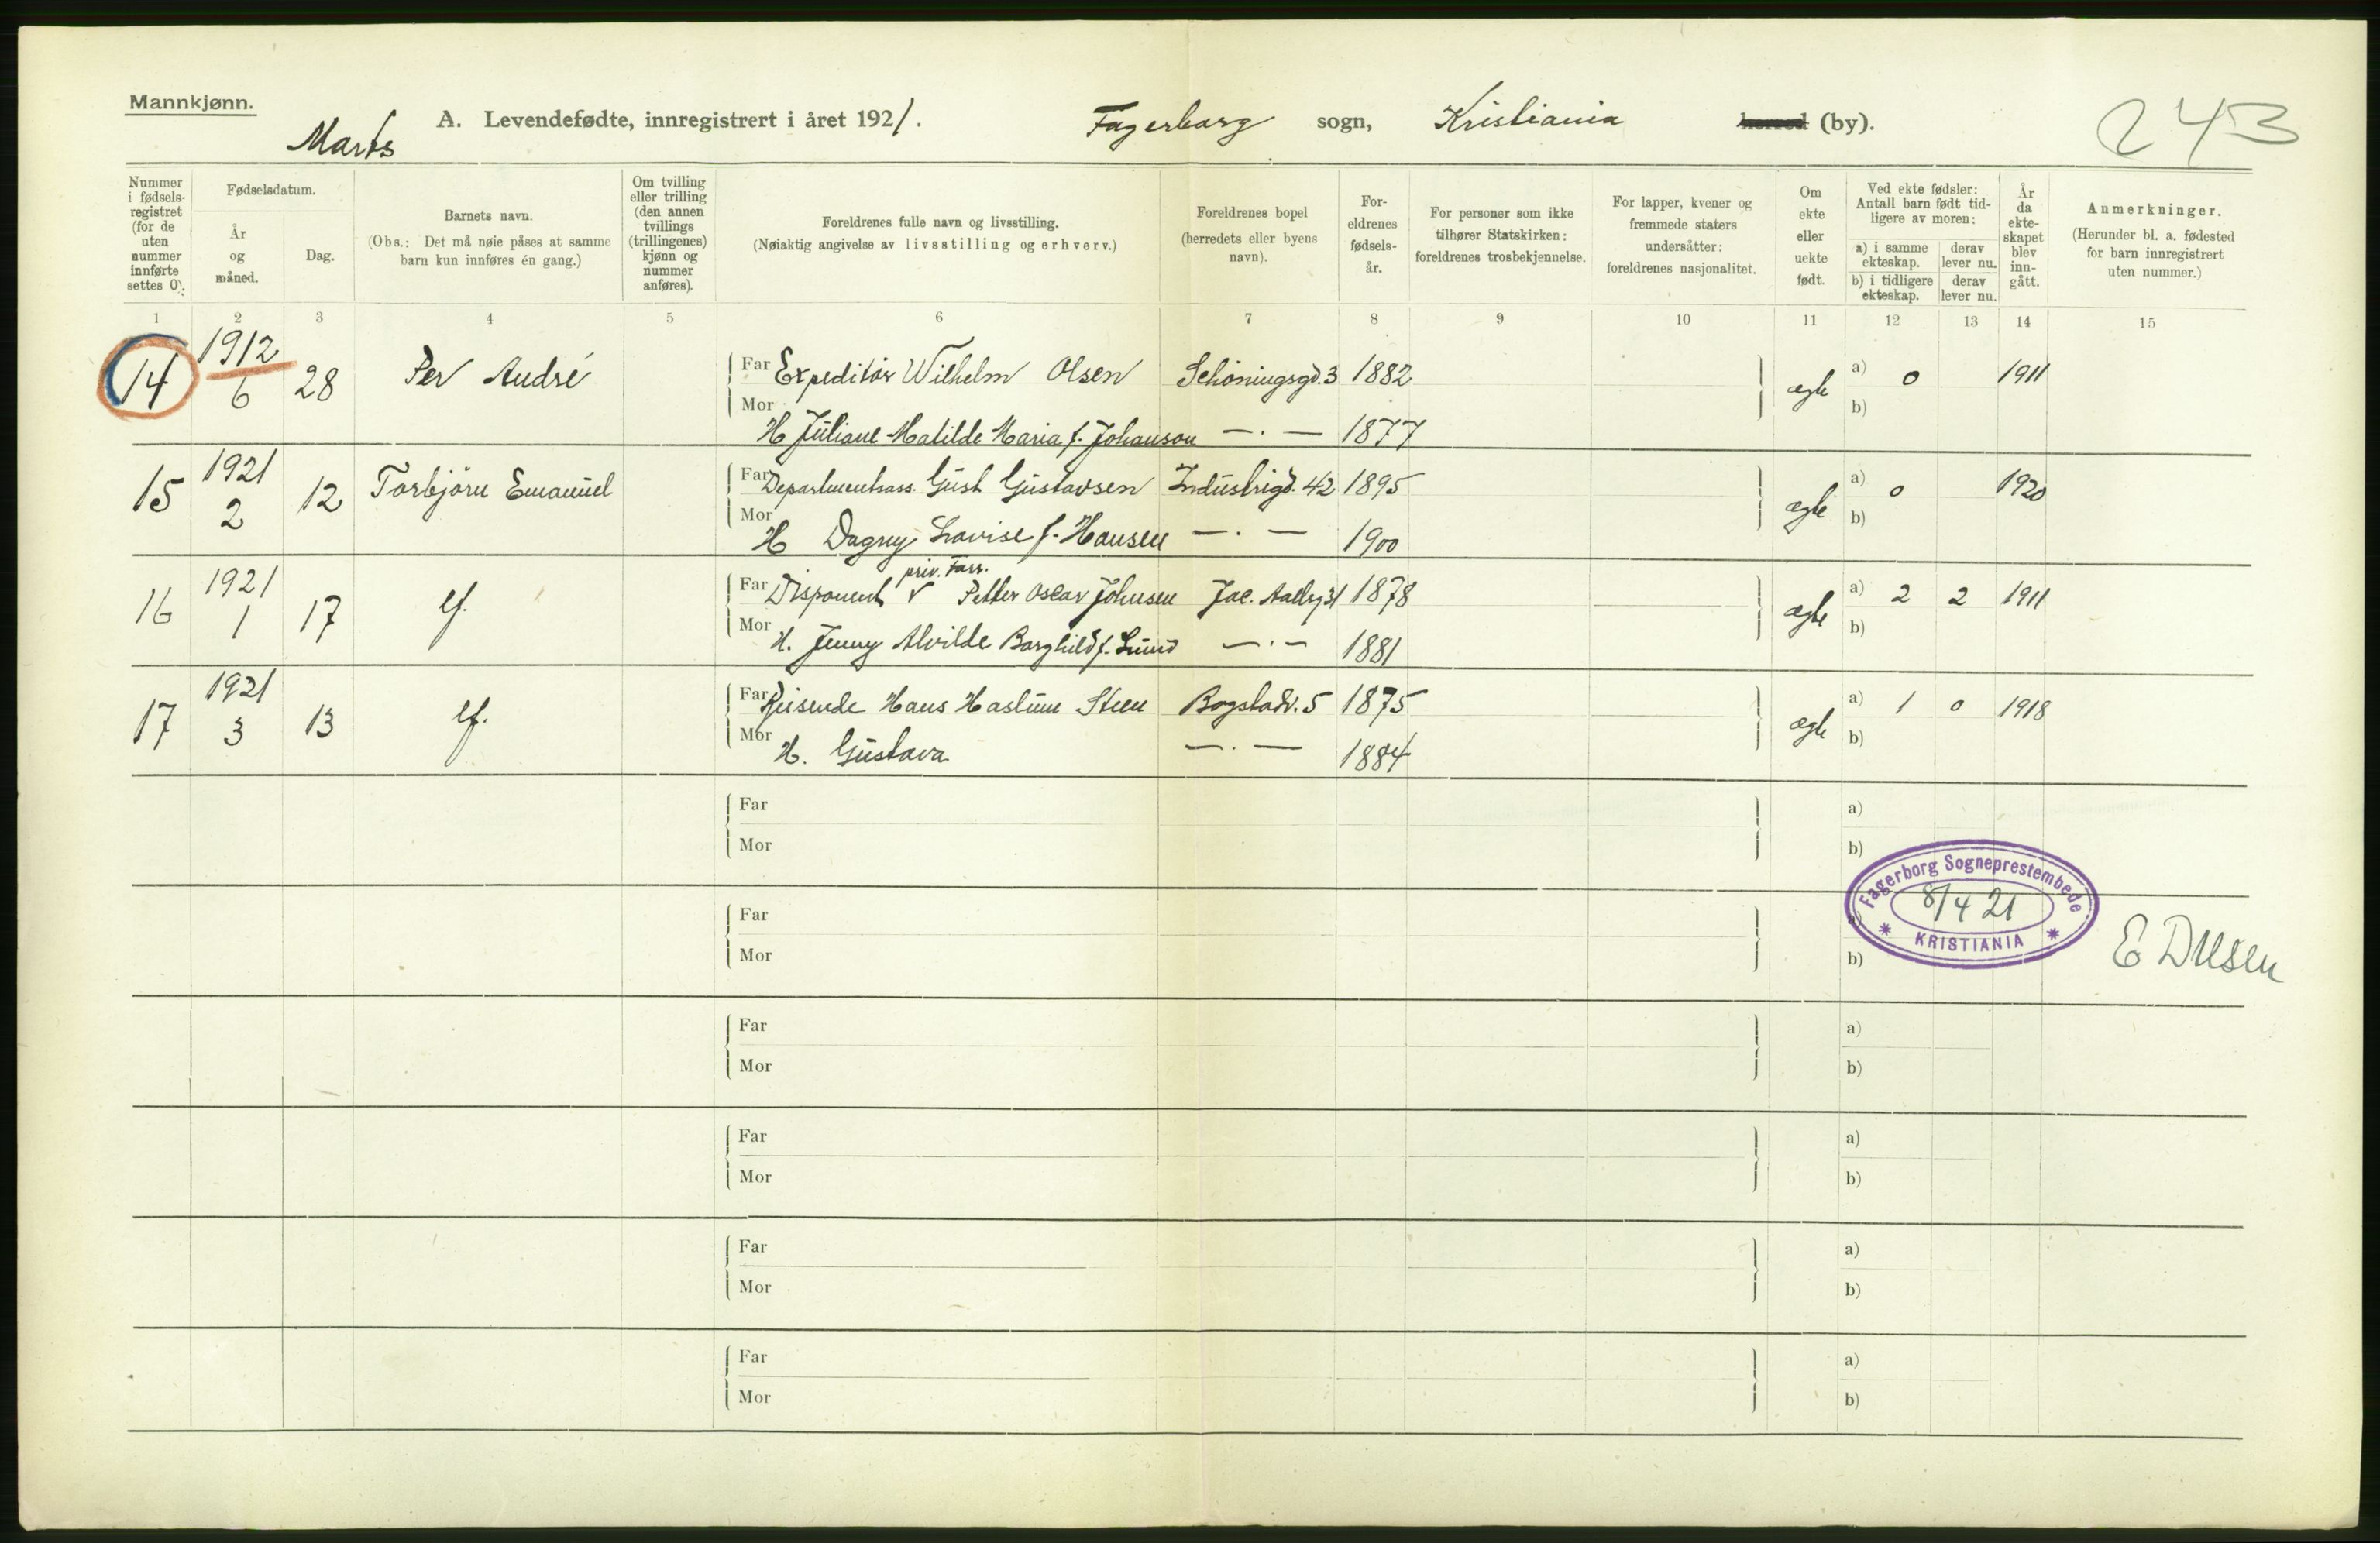 Mannkjønn.
Marts
A. Levendefødte, innregistrert i året 1921.
Fagerborg sogn, Kristiania herred (by).
243
Nummer i fødsels-registret (for de uten nummer innførte settes 0).
Fødselsdatum.
År og måned.
Dag.
Barnets navn.
(Obs.: Det må nøie påses at samme barn kun innføres én gang.)
Om tvilling eller trilling (den annen tvillings (trillingenes) kjønn og nummer anføres).
Foreldrenes fulle navn og livsstilling.
(Nøiaktig angivelse av livsstilling og erhverv.)
Foreldrenes bopel (herredets eller byens navn).
For-eldrenes fødsels-år.
For personer som ikke tilhører Statskirken: foreldrenes trosbekjennelse.
For lapper, kvener og fremmede staters undersåtter: foreldrenes nasjonalitet.
Om ekte eller uekte født.
Ved ekte fødsler: Antall barn født tid-ligere av moren:
a) i samme ekteskap.
derav lever nu.
b) i tidligere ekteskap.
derav lever nu.
År da ekte-skapet blev inn-gått.
Anmerkninger.
(Herunder bl. a. fødested for barn innregistrert uten nummer.)
1 2 3 4 5 6 7 8 9 10 11 12 13 14 15
14 1912 6 28 Per André Far Expeditør Wilhelm Olsen Schöningsgd. 3 1882 ægte a) 0 1911
Mor H Juliane Matilde Maria f. Johanson —·— 1877 b)
15 1921 2 12 Torbjörn Emanuel Far Departmentsass. Gust Gustavsen Industrigd. 42 1895 ægte a) 0 1920
Mor H Dagny Lovise f. Hansen —·— 1900 b)
priv. Forr.
16 1921 1 17 lf. Far Disponent v Petter Oscar Johnsen Jac. Aallsg 31 1878 ægte a) 2 2 1911
Mor H. Jenny Alvilde Borghild f. Lund —·— 1881 b)
17 1921 3 13 lf. Far Reisende Hans Haslum Steen Bogstadv. 5 1875 ægte a) 1 0 1918
Mor H. Gustava —·— 1884 b)
Far a)
Mor b)
Fagerborg Sogneprestembede
8/4 21
KRISTIANIA
Far a)
Mor b)
Far a)
Mor b)
Far a)
Mor b)
Far a)
Mor b)
Far a)
Mor b)